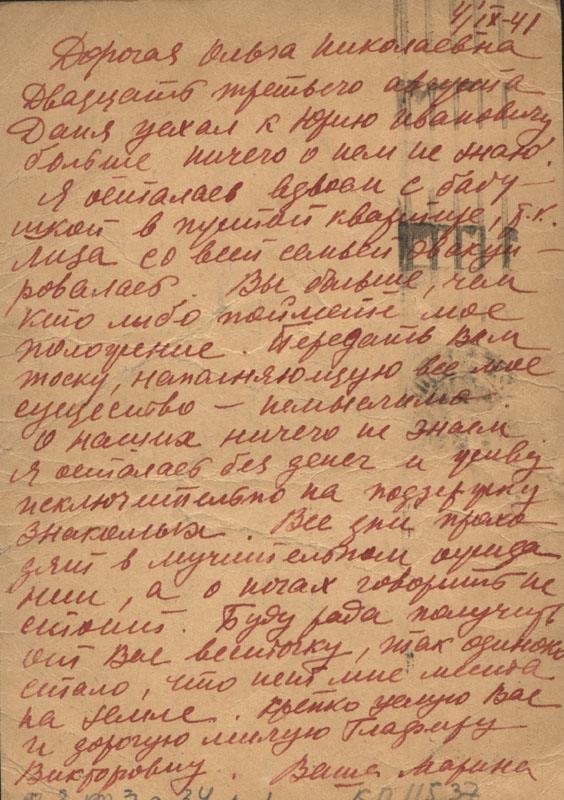 4/IX-41
Дорогая Ольга Николаевна
Двадцать третьего августа
Даня уехал к Юрию Ивановичу
больше ничего о нем не знаю.
Я осталась вдвоем с бабу-
шкой в пустой квартире, т.к.
Лиза со всей семьей эвакуи-
ровалась. Вы больше, чем
кто либо поймете мое
положение. Передать Вам
тоску, наполняющую все мое
существо – немыслимо.
О наших ничего не знаем
Я осталась без денег и живу
исключительно на поддержку
знакомых. Все дни прохо-
дят в мучительном ожида-
нии, а о ночах говорить не
стоит. Буду рада получить
от Вас весточку, так одиноко
стало, что нет мне места
на земле. Крепко целую Вас
и дорогую милую Глафиру
Викторовну. Ваша Марина
КП 11537